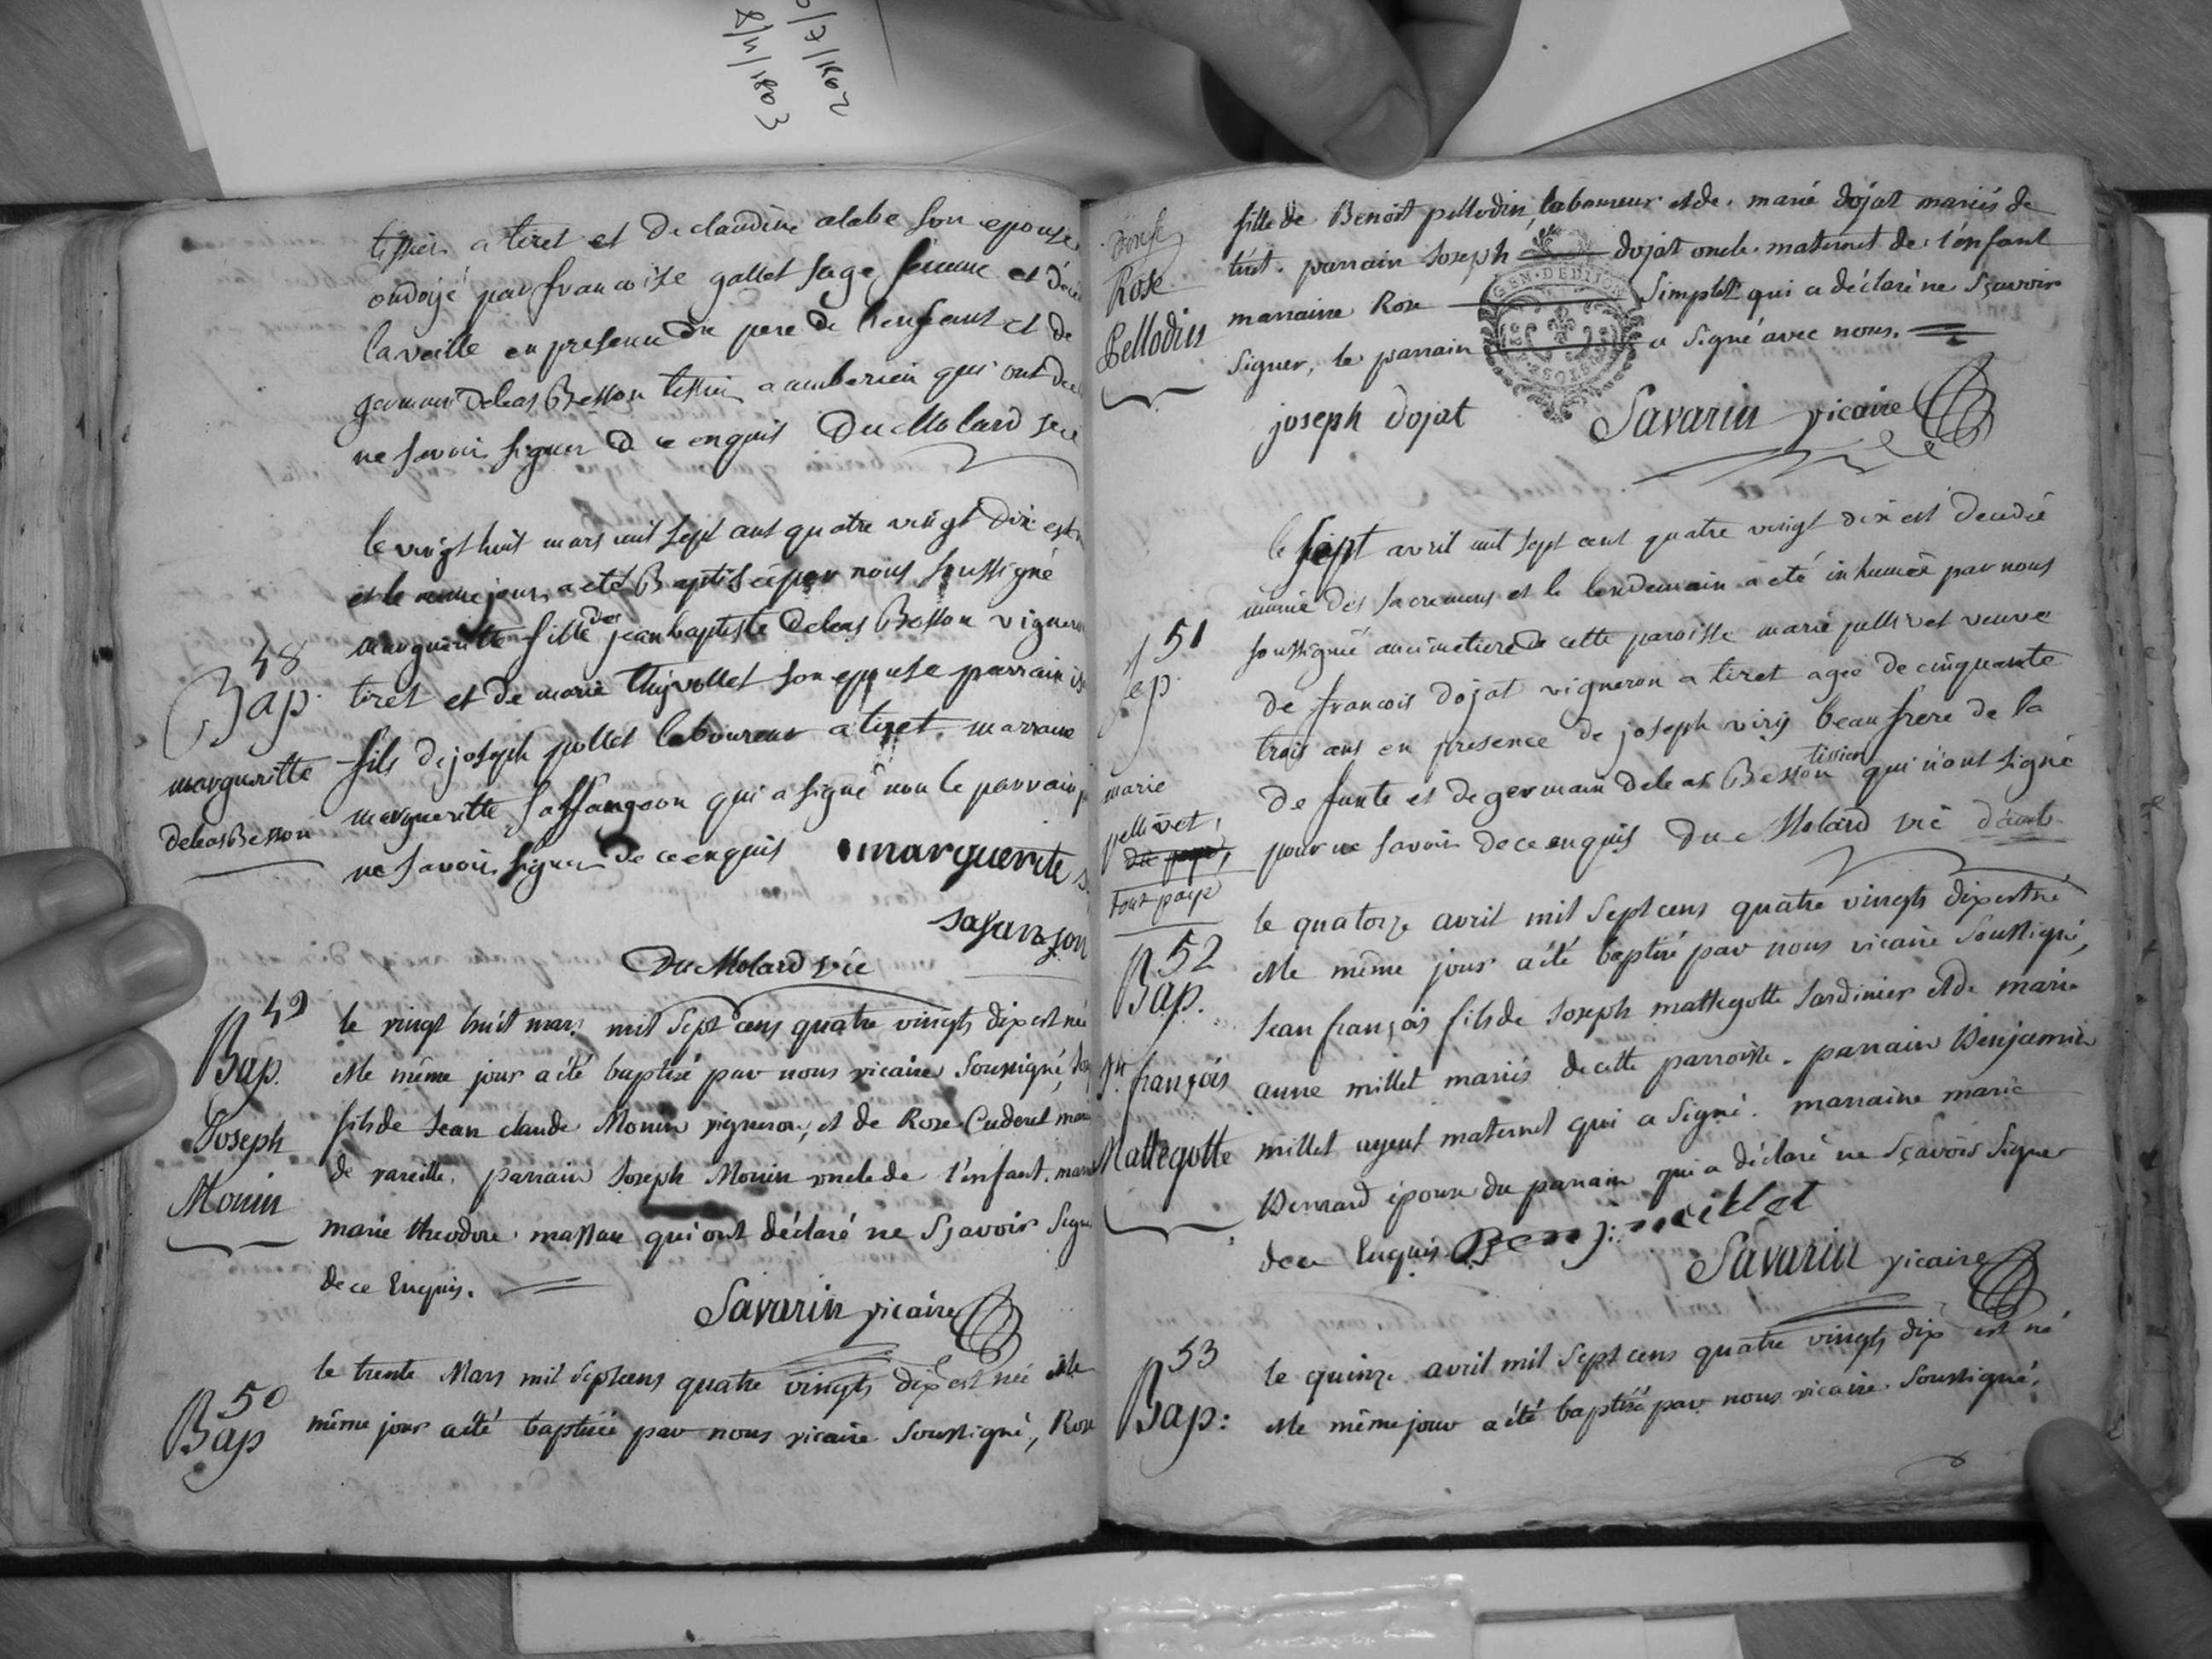 8/4/1803
tissier a tiret et de claudine alabe son epouse
ondoyé par francoise gallet sage femme et
la veille en presence du pere de l'enfant et de
germain deleas Besson tissier a amberieu qui ont
ne savoir signer de ce enquis Du Molard
le vingt huit mars mil sept cent quatre vingt dix est
et le meme jour a été Baptisée par nous soussigné
marguerite fille de jean baptiste deleas Besson vigneron
tiret et de marie thyvollet son epouse parrain
fils de joseph pollet laboureur a tiret. marraine
marguerite saffangeon qui a signé non le parrain
ne savoir signer de ce enquis marguerite
safangon
Du Molard vic
48
Bap.
margueritte
deleas Besson
49
Bap.
Joseph
Monin
le vingt huit mars mil sept cens quatre vingts dix est né
et le même jour a été baptisé par nous vicaire soussigné,
fils de Jean claude Monin vigneron, et de Rose Cuderet
de vareille. parrain Joseph Monin oncle de l'enfant.
marie theodore massau qui ont déclaré ne sçavoir
de ce Enquis.
Savarin vicaire
50
Bap
le trente Mars mil sept cens quatre vingts dix est née et le
même jour a été baptisée par nous vicaire soussigné, Rose
Rose
Pellodin
fille de Benoit pellodin, laboureur et de marie dojat mariés de
tiret. parrain Joseph dojat oncle maternel de l'enfant
marraine Rose Simplet qui a déclaré ne sçavoir
signer, le parrain a signé avec nous.
GEN. DE DIJON
joseph dojat Savarin vicaire
51
sep.
marie
pellivet,
tout payé
le sept avril mil sept cent quatre vingt dix est decedée
munie des sacremens et le lendemain a été inhumée par nous
soussigné au cimetiere de cette paroisse marie pellivet veuve
de francois dojat vigneron a tiret agée de cinquante
trois ans en presence de joseph viry beau frere de la
defunte et de germain deleas Besson tissier qui n'ont signé
pour ne savoir de ce enquis Du Molard vic d'amb
52
Bap.
Jn françois
Mattegotte
le quatorze avril mil sept cens quatre vingts dix est né
et le même jour a été baptisé par nous vicaire soussigné,
Jean françois fils de Joseph mattegotte Jardinier et de marie
anne millet mariés de cette parroisse. parrain Benjamin
millet ayeul maternel qui a signé. marraine marie
Bernard épouse du parrain qui a déclaré ne sçavoir signer
de ce Enquis Benj: millet
Savarin vicaire
53
Bap:
le quinze avril mil sept cens quatre vingts dix est né
et le même jour a été baptisé par nous vicaire soussigné,